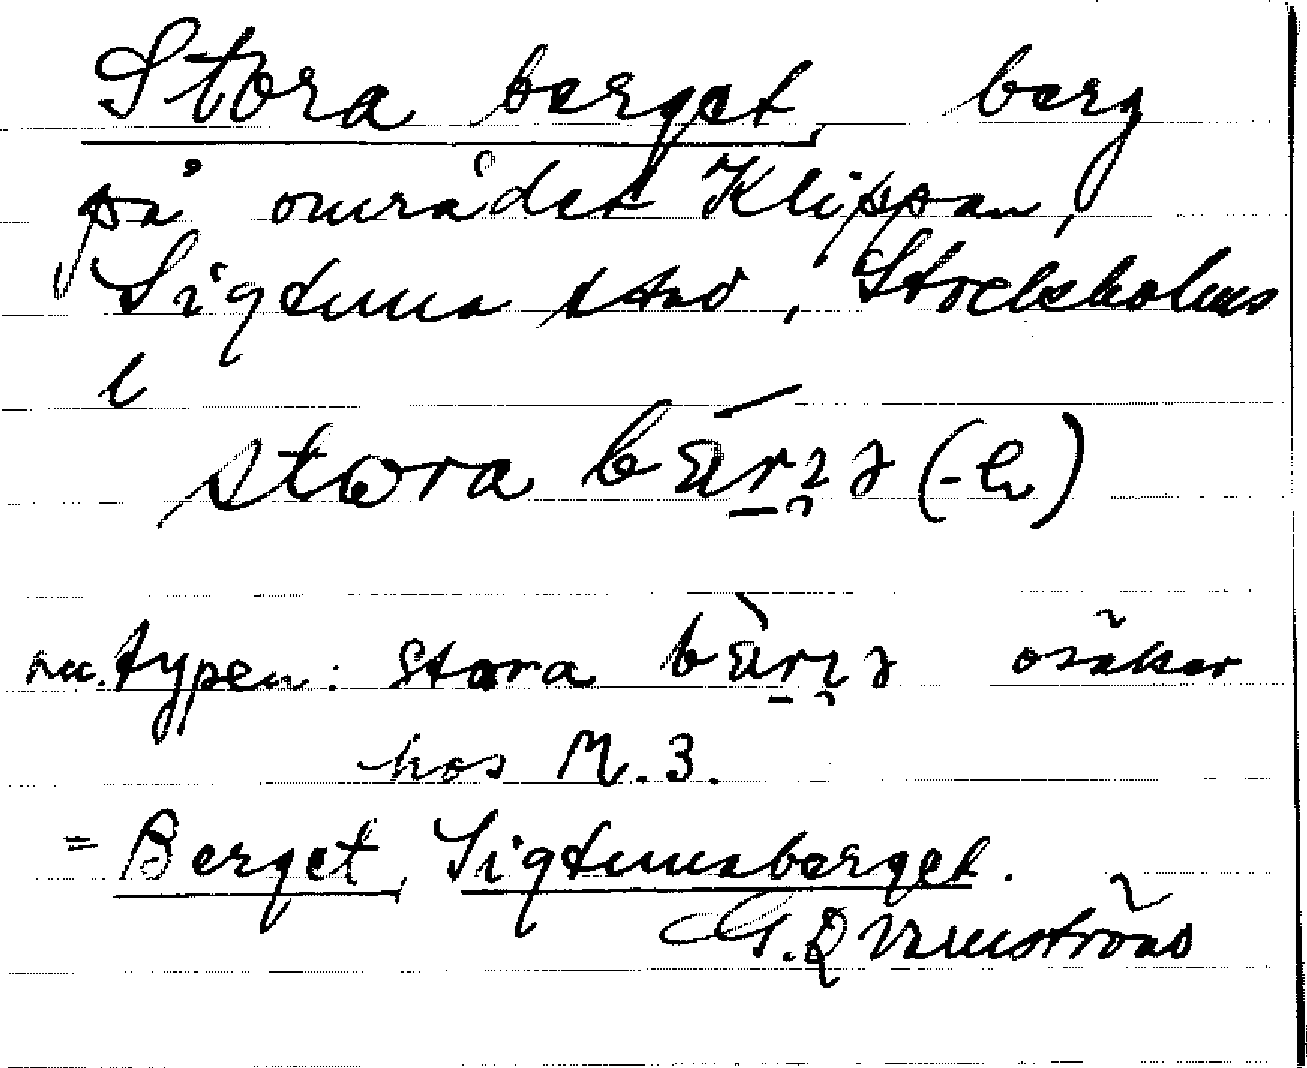 Stora berget, berg
på området Klippan,
Sigtuna stad, Stockholms
l
stora bärjə (-e)
typen: stora bärjə osäker
hos M. 3.
= Berget, Sigtunaberget.
G.